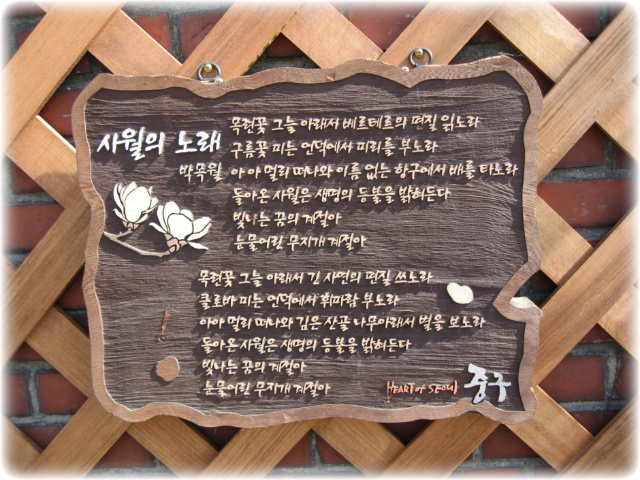 사월의 노래
박목월
목련꽃 그늘 아래서 베르테르의 편질 읽노라
구름꽃 피는 언덕에서 피리를 부노라
아 아 멀리 떠나와 이름 없는 항구에서 배를 타노라
돌아온 사월은 생명의 등불을 밝혀든다
빛나는 꿈의 계절아
눈물어린 무지개 계절아
목련꽃 그늘 아래서 긴 사연의 편질 쓰노라
클로바 피는 언덕에서 휘파람 부노라
아아 멀리 떠나와 깊은 산골 나무아래서 별을 보노라
돌아온 사월은 생명의 등불을 밝혀든다
빛나는 꿈의 계절아
눈물어린 무지개 계절아
HEART of SEOUL 중구